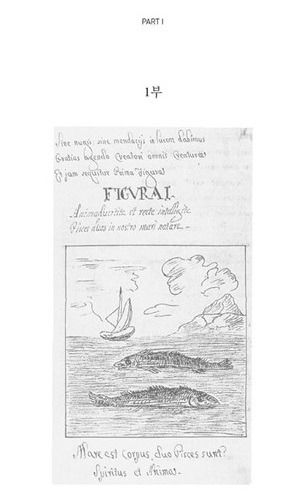 PART I
1부
Sine nugis, sine mendacijs à lucem dabimus
Gratias agendo Creatori omnis Creaturæ
Et jam sequitur Prima Figura
FIGURA I.
Animadvertite et recte intelligite
Pisces duos in nostro mari natare.
Mare est Corpus, duo Pisces sunt
Spiritus et Animas.